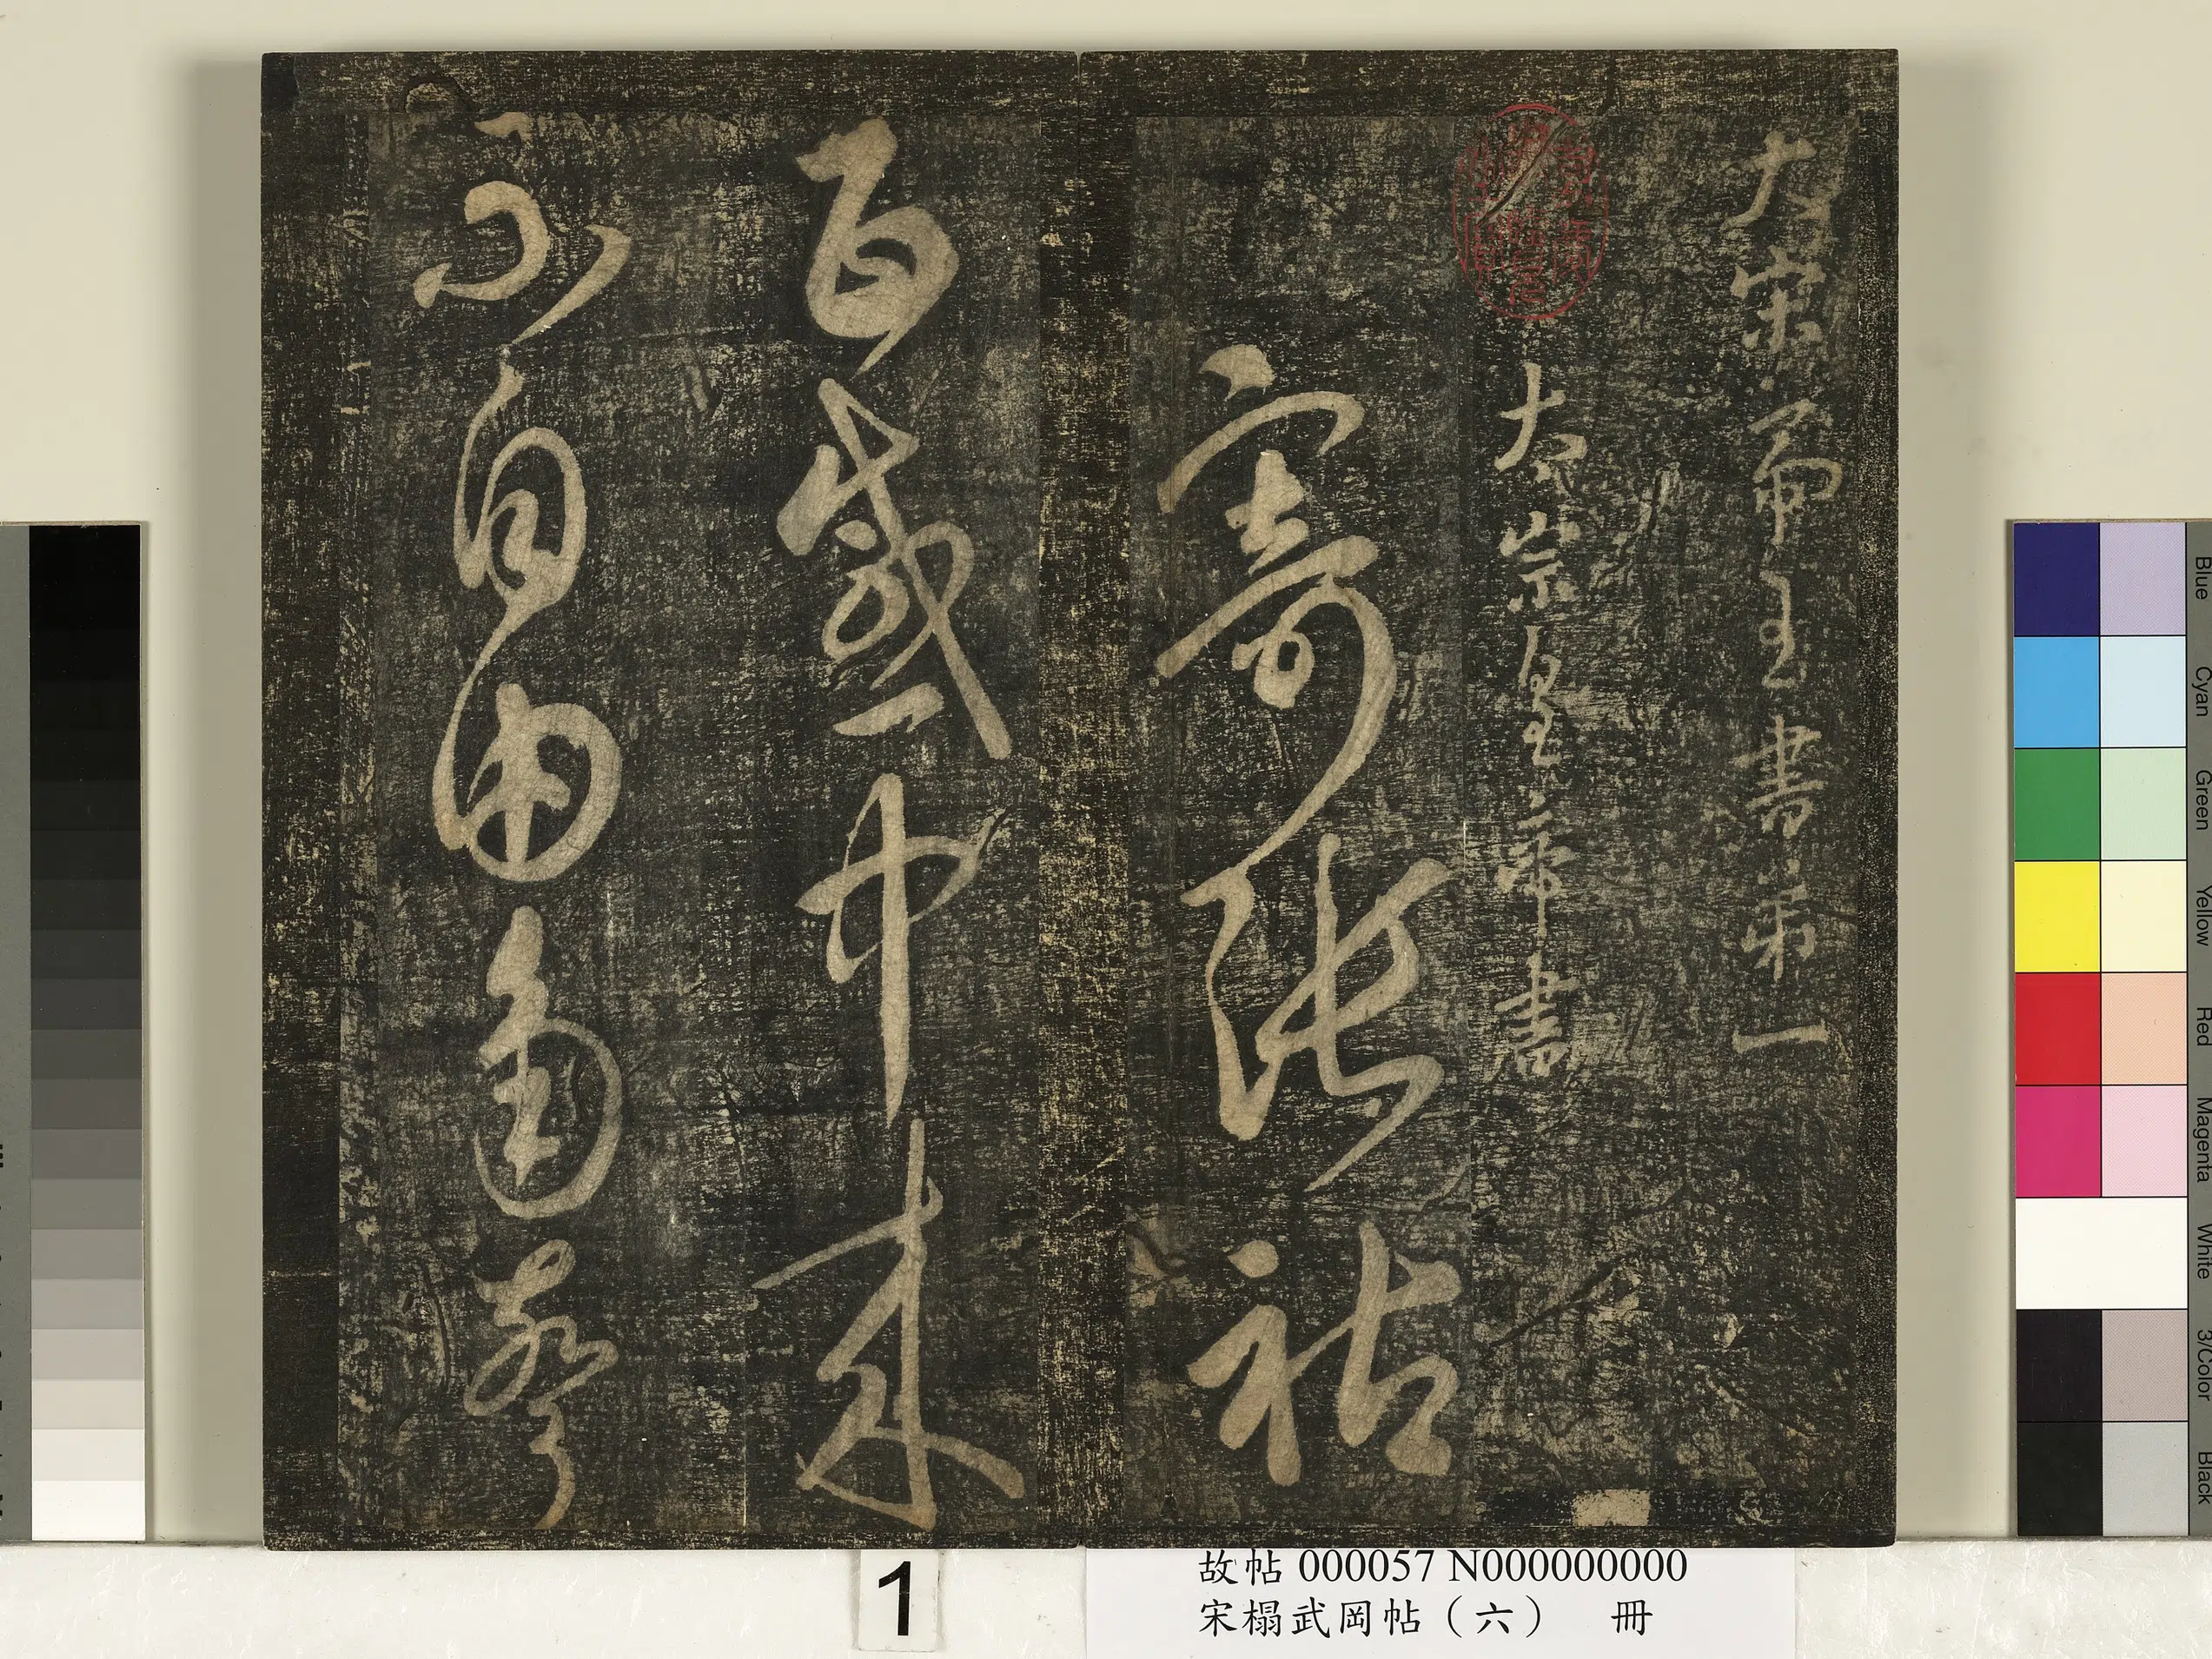 大宋帝王書第一
太宗皇帝書
寄張祜
百感中來
不自由角聲
1
故帖 000057 N000000000
宋榻武岡帖（六） 冊
Blue
Cyan
Green
Yellow
Red
Magenta
White
3/Color
Black